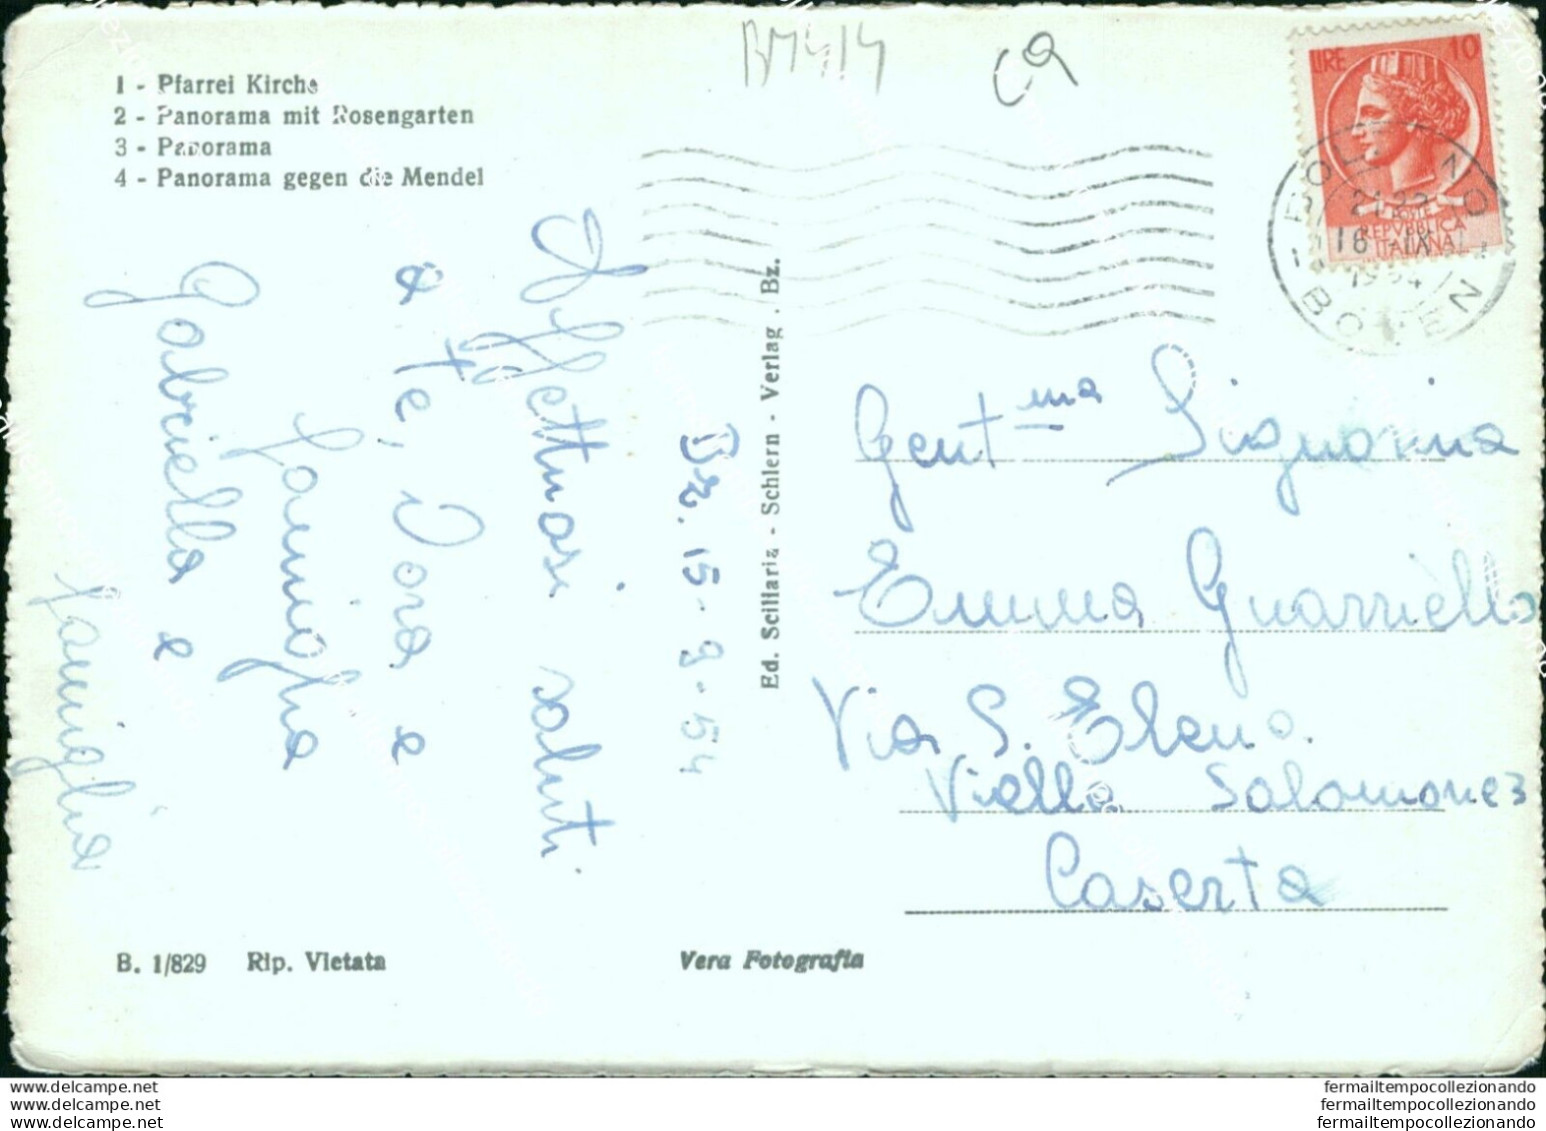 BM414
1 - Pfarrei Kirche
2 - Panorama mit Rosengarten
3 - Panorama
4 - Panorama gegen die Mendel
LIRE 10
POSTE
REPVBBLICA
ITALIANA
BOLZANO
16 IX
1954
BOZEN
Bz. 15-9-54
Affettuosi saluti
a te, Dora e
famiglia
Gabriella e
famiglia
Ed. Sciliariz - Schlern - Verlag . Bz.
Gent.ma Signorina
Emma Guarriello
Via S. Elena
Viella Salomone 3
Caserta
B. 1/829 Rip. Vietata
Vera Fotografia
delcampe.net
delcampe.net
delcampe.net
fermailtempocollezionando
fermailtempocollezionando
fermailtempocollezionando